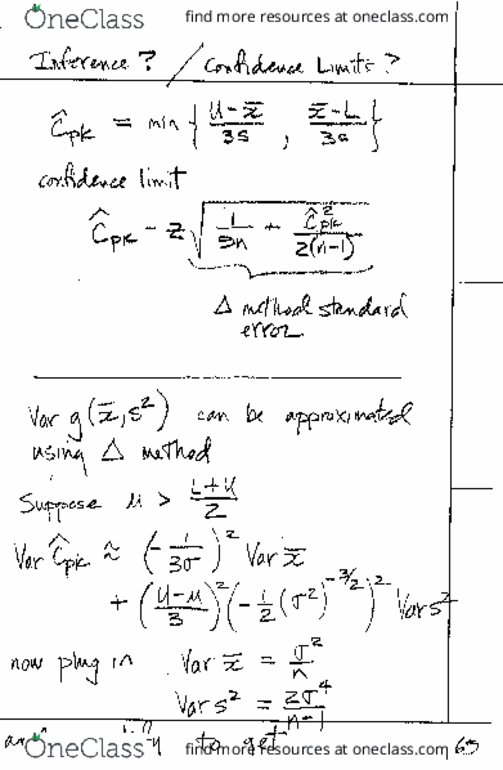 OneClass find more resources at oneclass.com
Inference? / Confidence Limits?
Ĉpk = min { (U-x̄)/3s , (x̄-L)/3s }
confidence limit
Ĉpk - z √( 1/9n + Ĉ²pk/2(n-1) )
Δ method standard
error.
Var g(x̄, s²) can be approximated
using Δ method
Suppose μ > (L+U)/2
Var Ĉpk ≈ (-1/3σ)² Var x̄
+ ((U-μ)/3)² (-1/2 (σ²)^(-3/2))² Var s²
now plug in Var x̄ = σ²/n
Var s² = 2σ⁴/(n-1)
to get 65
OneClass find more resources at oneclass.com